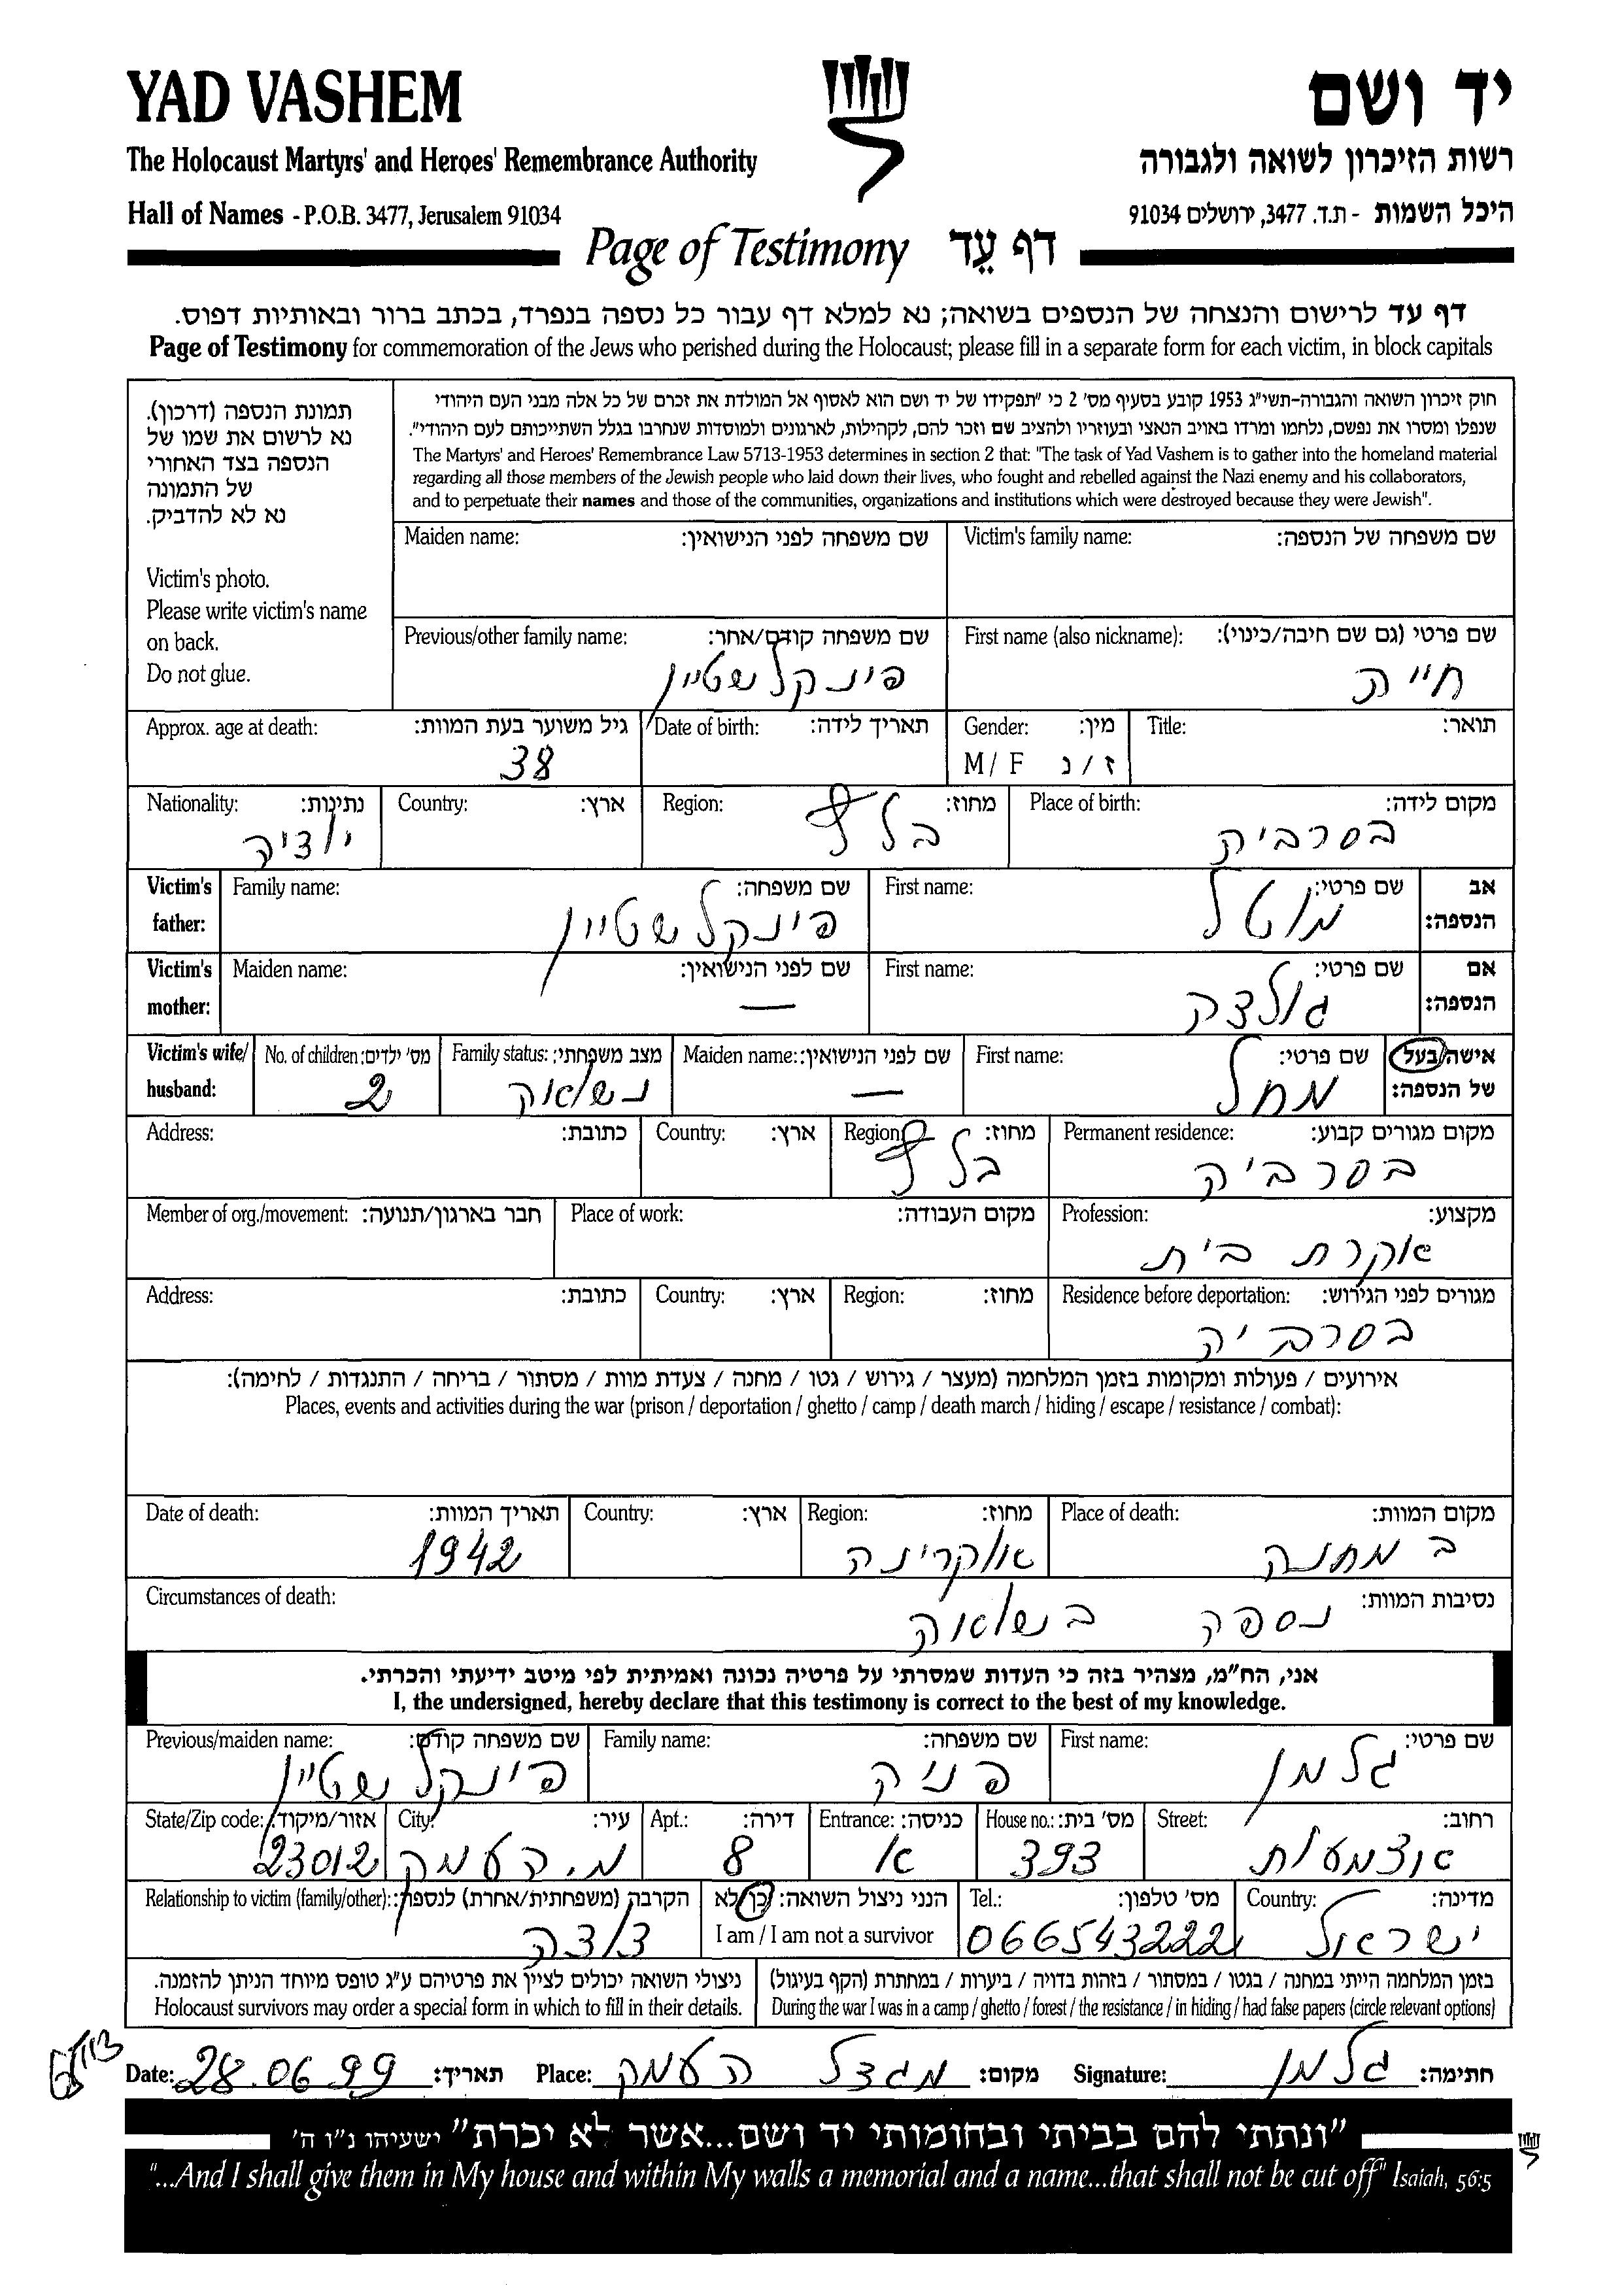 YAD VASHEM
יד ושם
The Holocaust Martyrs' and Heroes' Remembrance Authority
רשות הזיכרון לשואה ולגבורה
Hall of Names - P.O.B. 3477, Jerusalem 91034
היכל השמות - ת.ד. 3477, ירושלים 91034
Page of Testimony דף עֵד
דף עד לרישום והנצחה של הנספים בשואה; נא למלא דף עבור כל נספה בנפרד, בכתב ברור ובאותיות דפוס.
Page of Testimony for commemoration of the Jews who perished during the Holocaust; please fill in a separate form for each victim, in block capitals
תמונת הנספה (דרכון).
נא לרשום את שמו של
הנספה בצד האחורי
של התמונה
נא לא להדביק.
Victim's photo.
Please write victim's name
on back.
Do not glue.
חוק זיכרון השואה והגבורה-תשי"ג 1953 קובע בסעיף מס' 2 כי "תפקידו של יד ושם הוא לאסוף אל המולדת את זכרם של כל אלה מבני העם היהודי
שנפלו ומסרו את נפשם, נלחמו ומרדו באויב הנאצי ובעוזריו ולהציב שם וזכר להם, לקהילות, לארגונים ולמוסדות שנחרבו בגלל השתייכותם לעם היהודי".
The Martyrs' and Heroes' Remembrance Law 5713-1953 determines in section 2 that: "The task of Yad Vashem is to gather into the homeland material
regarding all those members of the Jewish people who laid down their lives, who fought and rebelled against the Nazi enemy and his collaborators,
and to perpetuate their names and those of the communities, organizations and institutions which were destroyed because they were Jewish".
Victim's family name: שם משפחה של הנספה:
Maiden name: שם משפחה לפני הנישואין:
First name (also nickname): שם פרטי (גם שם חיבה/כינוי):
חייה
Previous/other family name: שם משפחה קודם/אחר:
פינקלשטיין
Title: תואר:
Gender: מין:
M / F ז / נ
Date of birth: תאריך לידה:
Approx. age at death: גיל משוער בעת המוות:
38
Place of birth: מקום לידה:
בסרביה
Region: מחוז:
Country: ארץ:
Nationality: נתינות:
Victim's father: אב הנספה:
First name: שם פרטי:
מוטל
Family name: שם משפחה:
פינקלשטיין
Victim's mother: אם הנספה:
First name: שם פרטי:
גולדה
Maiden name: שם לפני הנישואין:
—
Victim's wife/ husband: אישה/בעל של הנספה:
First name: שם פרטי:
מחל
Maiden name: שם לפני הנישואין:
—
Family status: מצב משפחתי:
נשואה
No. of children: מס' ילדים:
2
Permanent residence: מקום מגורים קבוע:
בסרביה
Region: מחוז:
Country: ארץ:
Address: כתובת:
Profession: מקצוע:
אקרת בית
Place of work: מקום העבודה:
Member of org./movement: חבר בארגון/תנועה:
Residence before deportation: מגורים לפני הגירוש:
בסרביה
Region: מחוז:
Country: ארץ:
Address: כתובת:
אירועים / פעולות ומקומות בזמן המלחמה (מעצר / גירוש / גטו / מחנה / צעדת מוות / מסתור / בריחה / התנגדות / לחימה):
Places, events and activities during the war (prison / deportation / ghetto / camp / death march / hiding / escape / resistance / combat):
Place of death: מקום המוות:
במחנה
Region: מחוז:
אוקרינה
Country: ארץ:
Date of death: תאריך המוות:
1942
Circumstances of death: נסיבות המוות:
נספה בשואה
אני, הח"מ, מצהיר בזה כי העדות שמסרתי על פרטיה נכונה ואמיתית לפי מיטב ידיעתי והכרתי.
I, the undersigned, hereby declare that this testimony is correct to the best of my knowledge.
First name: שם פרטי:
גלמן
Family name: שם משפחה:
פניה
Previous/maiden name: שם משפחה קודם:
פינקלשטיין
Street: רחוב:
אצמעות
House no.: מס' בית:
393
Entrance: כניסה:
א
Apt.: דירה:
8
City: עיר:
מ. העמק
State/Zip code: אזור/מיקוד:
23012
Country: מדינה:
ישראל
Tel.: מס' טלפון:
066543222
הנני ניצול השואה: כן/לא
I am / I am not a survivor
Relationship to victim (family/other): הקרבה (משפחתית/אחרת) לנספה:
דודה
בזמן המלחמה הייתי במחנה / בגטו / במסתור / בזהות בדויה / ביערות / במחתרת (הקף בעיגול)
During the war I was in a camp / ghetto / forest / the resistance / in hiding / had false papers (circle relevant options)
ניצולי השואה יכולים לציין את פרטיהם ע"ג טופס מיוחד הניתן להזמנה.
Holocaust survivors may order a special form in which to fill in their details.
Date: 28.06.99 תאריך:
Place: מגדל העמק מקום:
Signature: גלמן חתימה:
"ונתתי להם בביתי ובחומותי יד ושם...אשר לא יכרת" ישעיהו נ"ו ה'
"...And I shall give them in My house and within My walls a memorial and a name...that shall not be cut off" Isaiah, 56:5